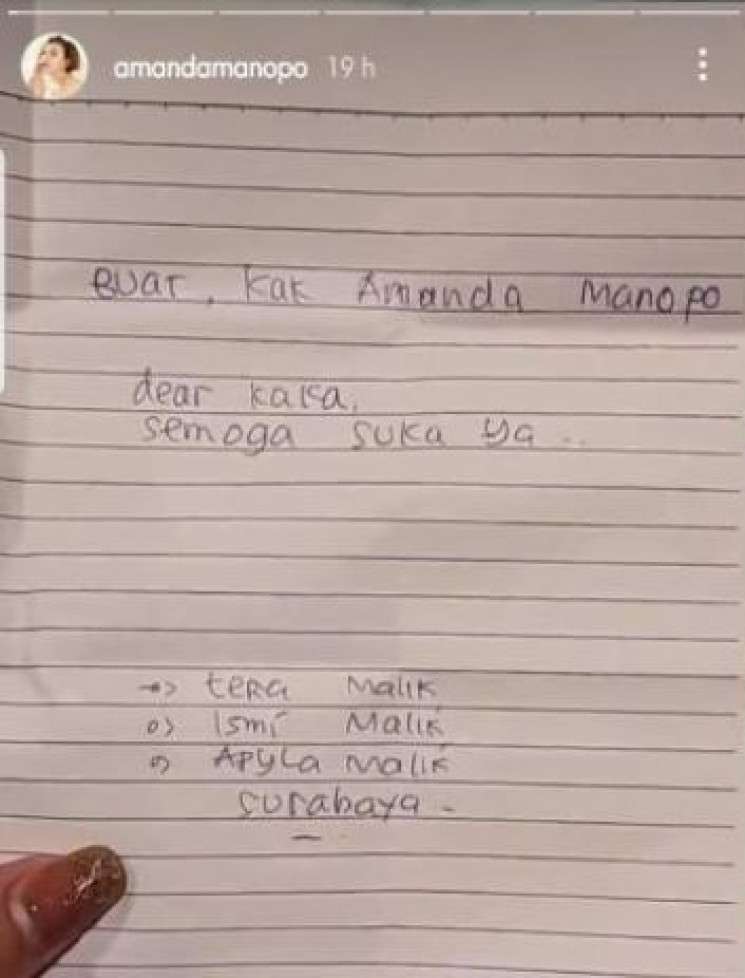 amandamanopo 19 h
Buat, Kak Amanda Manopo
dear kaka,
semoga suka ya ..
tera Malik
Ismi Malik
Apyla Malik
surabaya -